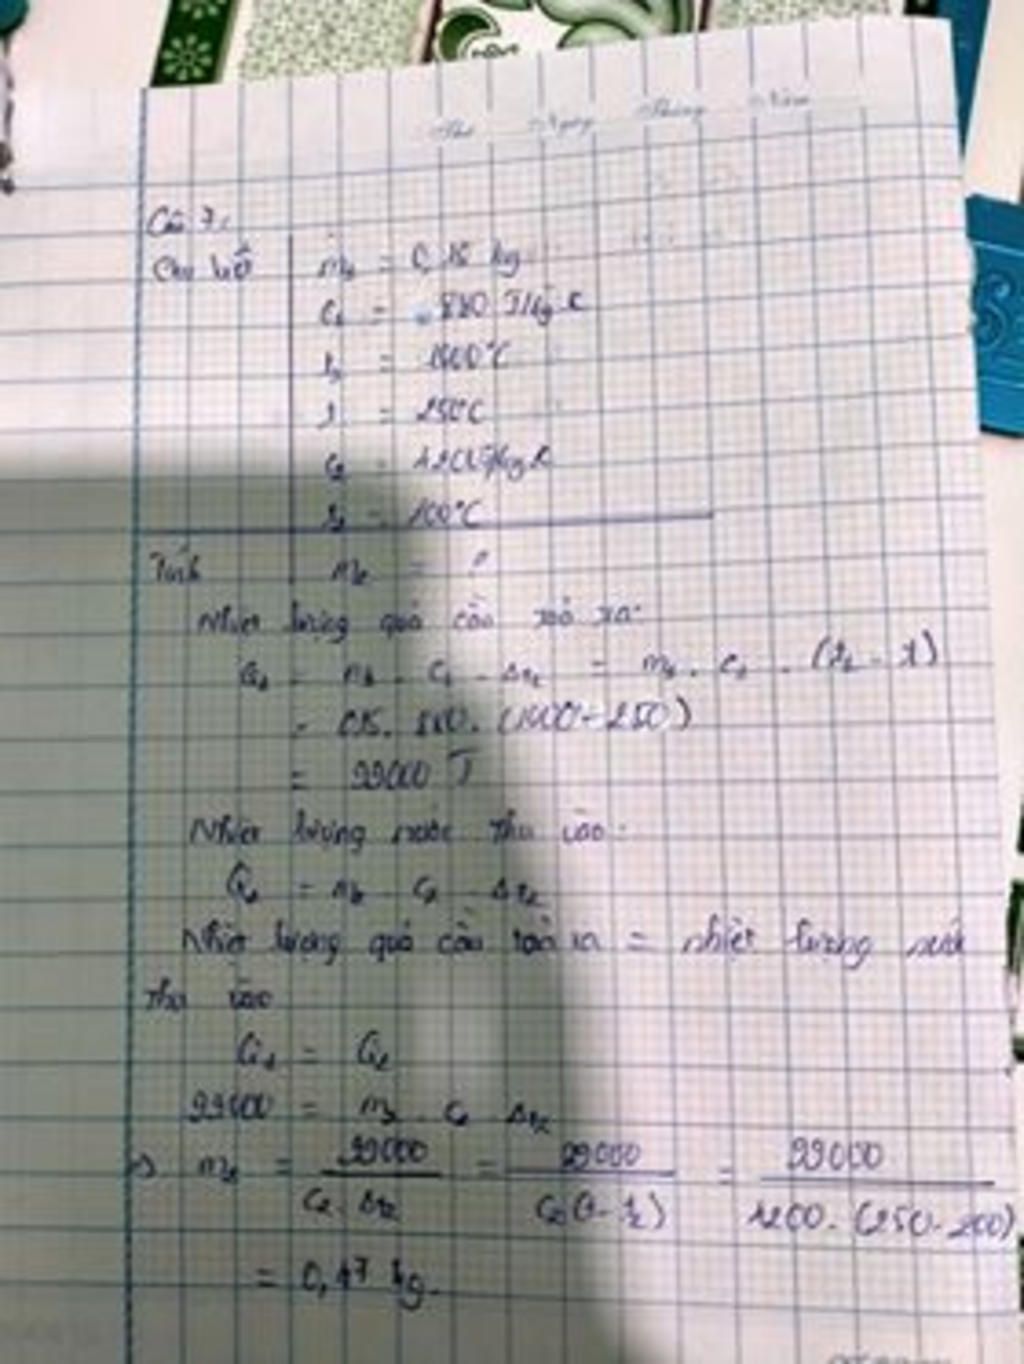 Thứ Ngày Tháng Năm
Câu 7:
Cho biết m₁ = 0,15 kg
C₁ = 880 J/kg.K
= 1000°C
t = 250°C
C₂ = 4200J/kg.K
t₂ = 200°C
Tính m₂ = ?
Nhiệt lượng quả cầu toả ra:
Q₁ = m₁ . C₁ . Δt₁ = m₁ . C₁ . (t₁ - t)
= 0,15. 880. (1000 - 250)
= 99000 J
Nhiệt lượng nước thu vào:
Q₂ = m₂ . C₂ . Δt₂
Nhiệt lượng quả cầu toả ra = nhiệt lượng nước
thu vào
Q₁ = Q₂
99000 = m₂ . C₂ . Δt₂
=> m₂ = 99000 / C₂ . Δt₂ = 99000 / C₂(t - t₂) = 99000 / 4200. (250 - 200)
= 0,47 kg.